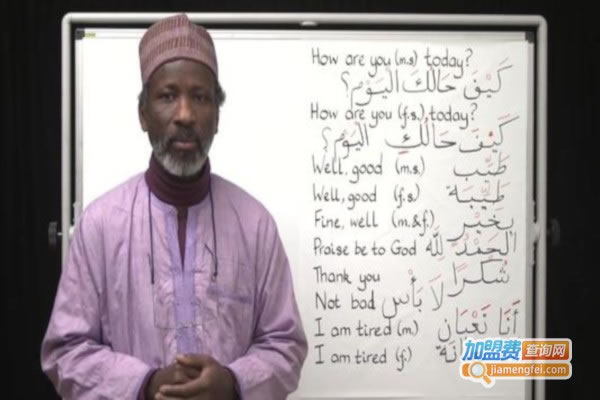 How are you (m.s) today?
كَيْفَ حَالُكَ الْيَوْمَ؟
How are you (f.s.) today?
كَيْفَ حَالُكِ الْيَوْمَ؟
Well, good (m.s.) طَيِّب
Well, good (f.s) طَيِّبَة
Fine, well (m.&f.) بِخَيْرٍ
Praise be to God الْحَمْدُ لِلَّه
Thank you شُكْرًا
Not bad لَا بَأْس
I am tired (m.) أَنَا تَعْبَان
I am tired (f.)
加盟费查询网
jiamengfei.com